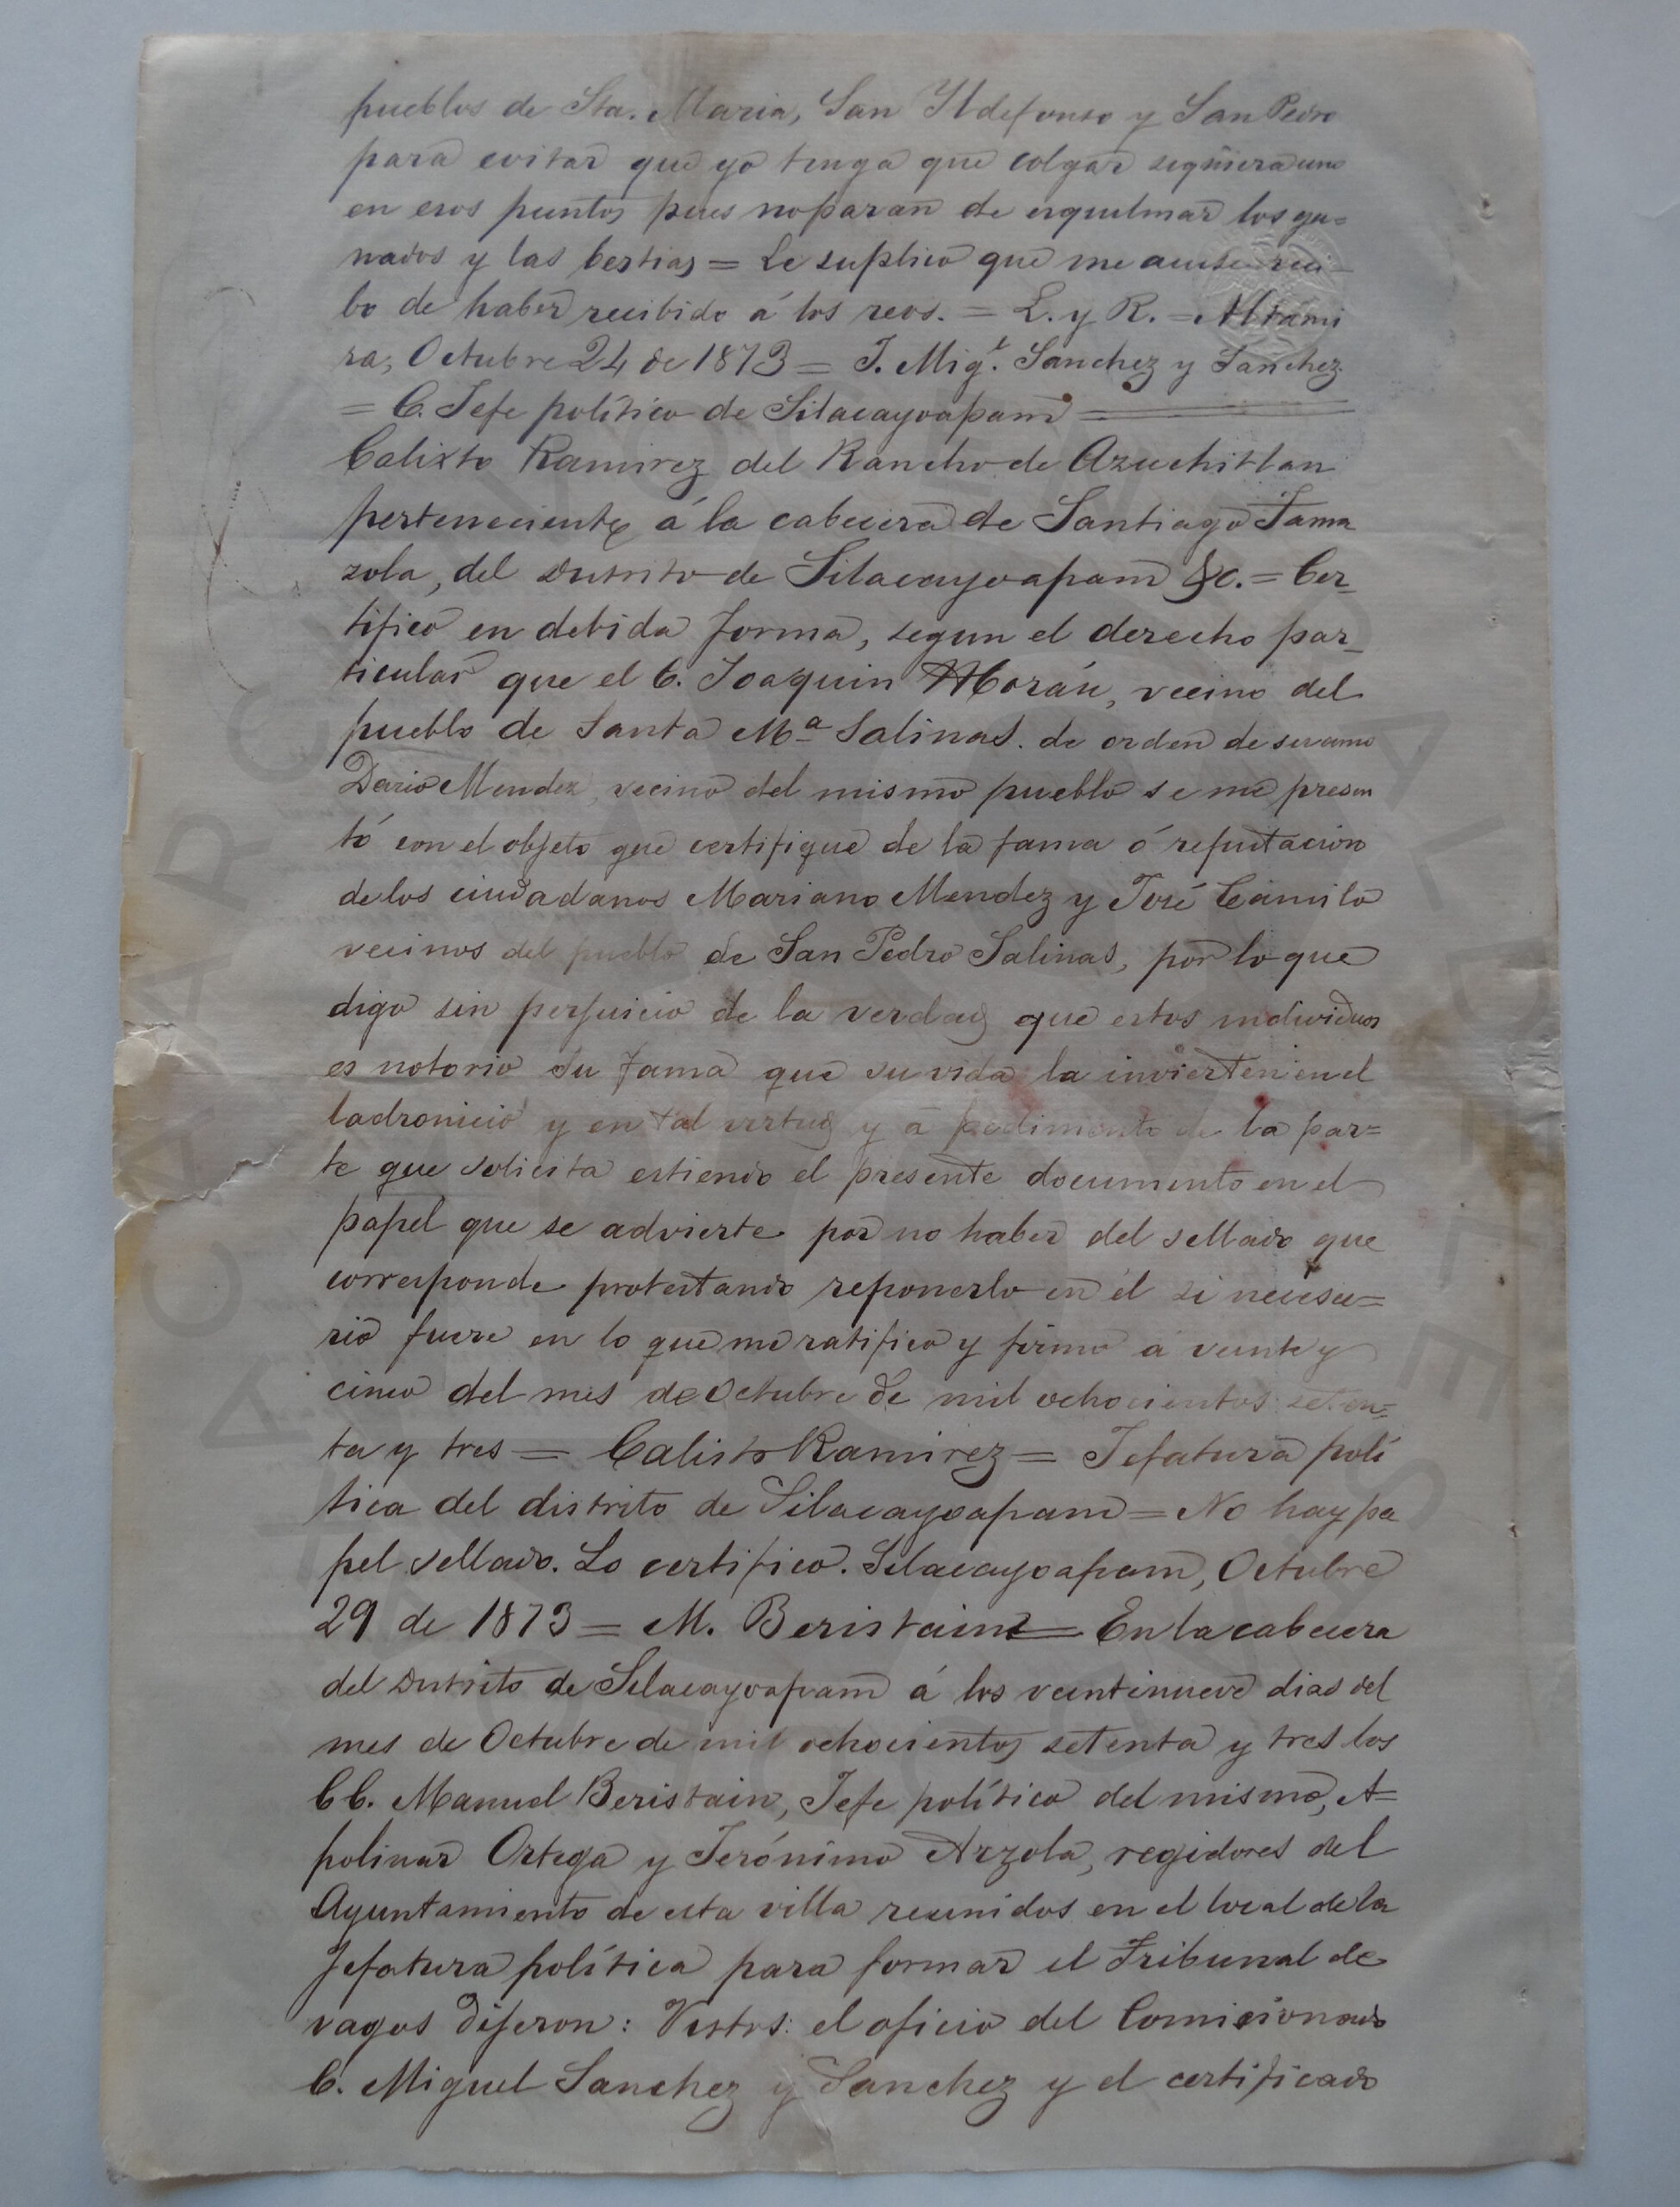 pueblos de Sta. Maria, San Yldefonso y San Pedro
para evitar que yo tenga que colgar siquiera uno
en esos puntos pues no paran de esquilmar los ga=
nados y las bestias = Le suplico que me acuse reci=
bo de haber recibido á los reos. = L. y R. = Altami
ra, Octubre 24 de 1873 = J. Migl. Sanchez y Sanchez
= C. Jefe político de Silacayoapam =
Calixto Ramirez del Rancho de Azuchitlan
perteneciente á la cabecera de Santiago Tama
zola, del Distrito de Silacayoapam &c. = Cer_
tifico en debida forma, segun el derecho par_
ticular que el C. Joaquin Morán, vecino del
pueblo de Santa Ma Salinas. de orden de su amo
Dario Mendez, vecino del mismo pueblo se me presen
tó con el objeto que certifique de la fama ó reputacion
de los ciudadanos Mariano Mendez y José Camilo
vecinos del pueblo de San Pedro Salinas, por lo que
digo sin perjuicio de la verdad que estos individuos
es notorio su fama que su vida la invierten en el
ladronicio y en tal virtud y a pedimento de la par=
te que solicita estiendo el presente documento en el
papel que se advierte por no haber del sellado que
corresponde protestando reponerlo en él si necesa=
rio fuere en lo que me ratifico y firmo á veinte y
cinco del mes de Octubre de mil ochocientos seten=
ta y tres = Calisto Ramirez = Jefatura polí
tica del distrito de Silacayoapam = No hay pa
pel sellado. Lo certifico. Silacayoapam, Octubre
29 de 1873 = M. Beristain = En la cabecera
del Distrito de Silacayoapam á los veintinueve dias del
mes de Octubre de mil ochocientos setenta y tres los
CC. Manuel Beristain, Jefe político del mismo, A=
polinar Ortega y Jerónimo Arzola, regidores del
Ayuntamiento de esta villa reunidos en el local de la
Jefatura política para formar el Tribunal de
vagos dijeron: Vistos: el oficio del Comicionado
C. Miguel Sanchez y Sanchez y el certificado